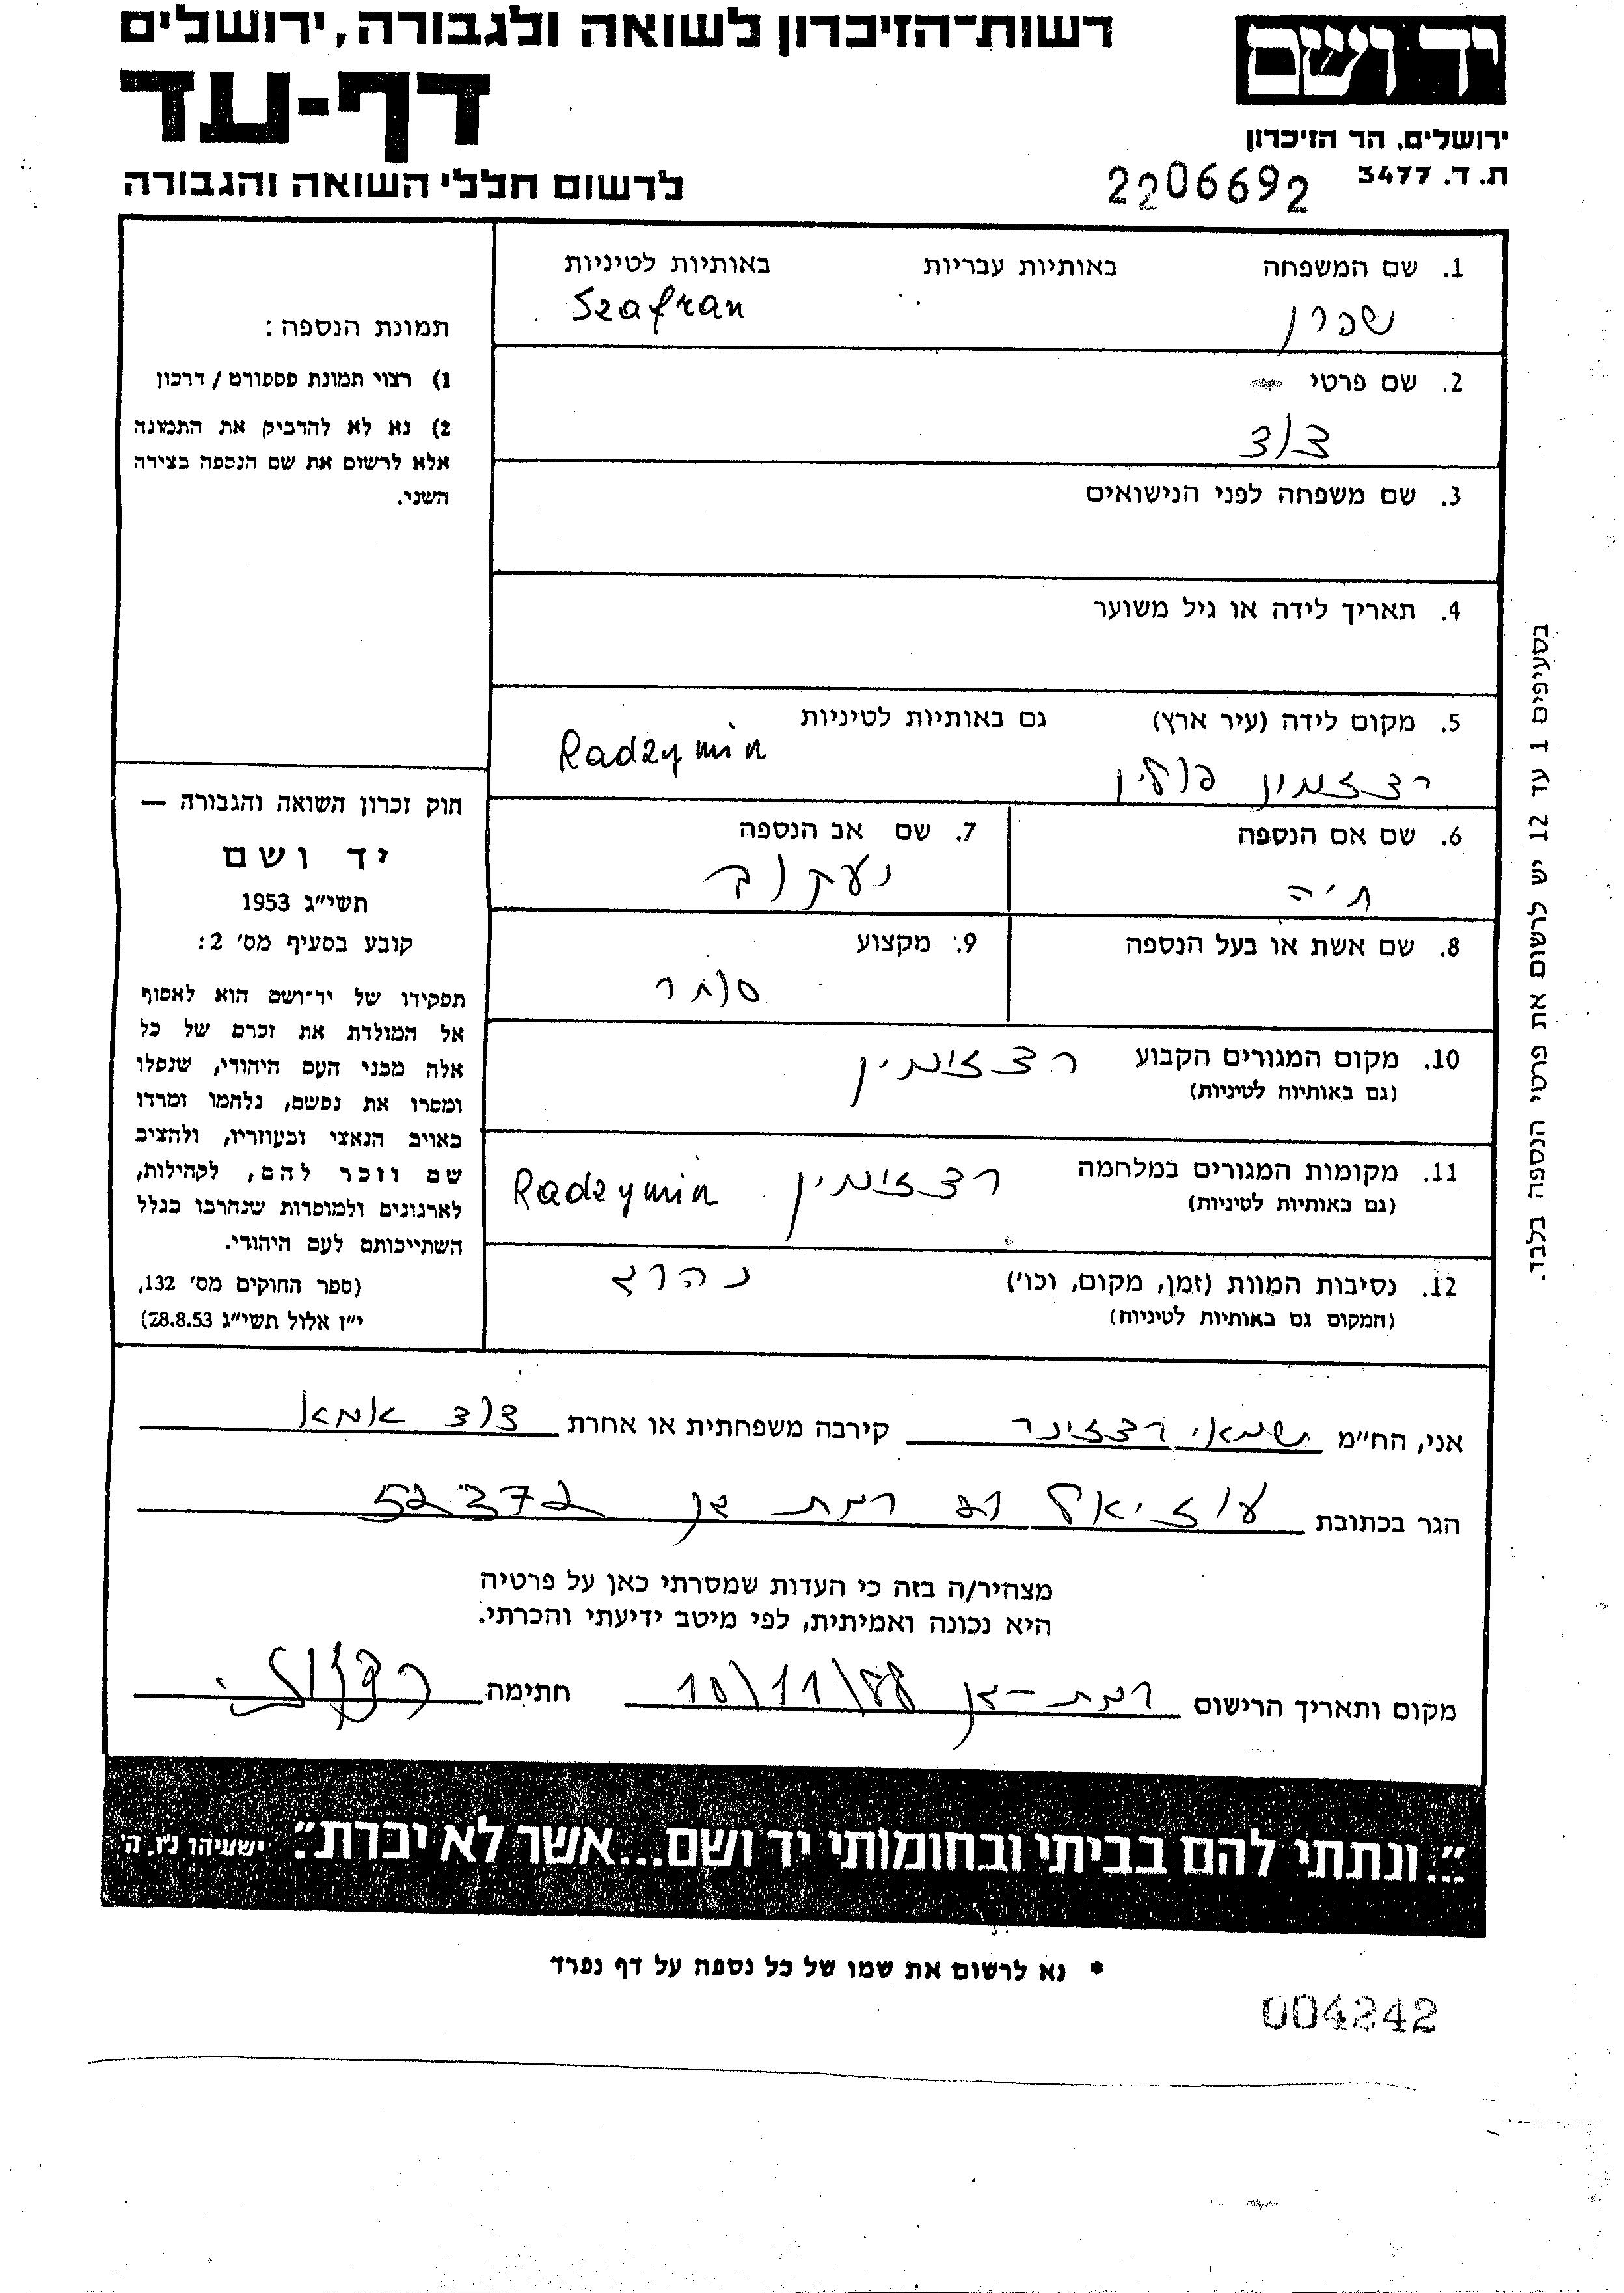 רשות־הזיכרון לשואה ולגבורה, ירושלים
יד ושם
דף-עד
ירושלים, הר הזיכרון
ת. ד. 3477
2206692
לרשום חללי השואה והגבורה
1. שם המשפחה באותיות עבריות באותיות לטיניות
שפרן Szafran
2. שם פרטי
דוד
3. שם משפחה לפני הנישואים
4. תאריך לידה או גיל משוער
5. מקום לידה (עיר ארץ) גם באותיות לטיניות
רדזמין פולין Radzymin
6. שם אם הנספה
חיה
7. שם אב הנספה
יעקוב
8. שם אשת או בעל הנספה
9. מקצוע
סוחר
10. מקום המגורים הקבוע רדזימין
(גם באותיות לטיניות)
11. מקומות המגורים במלחמה רדזימין Radzymin
(גם באותיות לטיניות)
12. נסיבות המוות (זמן, מקום, וכו') נהרג
(המקום גם באותיות לטיניות)
תמונת הנספה:
1) רצוי תמונת פספורט / דרכון
2) נא לא להדביק את התמונה
אלא לרשום את שם הנספה בצידה
השני.
חוק זכרון השואה והגבורה —
יד ושם
תשי״ג 1953
קובע בסעיף מס' 2:
תפקידו של יד־ושם הוא לאסוף
אל המולדת את זכרם של כל
אלה מבני העם היהודי, שנפלו
ומסרו את נפשם, נלחמו ומרדו
באויב הנאצי ובעוזריו, ולהציב
שם וזכר להם, לקהילות,
לארגונים ולמוסדות שנחרבו בגלל
השתייכותם לעם היהודי.
(ספר החוקים מס' 132,
י״ז אלול תשי״ג 28.8.53)
בסעיפים 1 עד 12 יש לרשום את פרטי הנספה בלבד.
אני, הח״מ שמאי רדזינר קירבה משפחתית או אחרת דוד אמא
הגר בכתובת עוזיאל רמת גן 52372
מצהיר/ה בזה כי העדות שמסרתי כאן על פרטיה
היא נכונה ואמיתית, לפי מיטב ידיעתי והכרתי.
מקום ותאריך הרישום רמת-גן 10/11/88 חתימה
״..ונתתי להם בביתי ובחומותי יד ושם...אשר לא יכרת״. ישעיהו נ״ו. ה'
* נא לרשום את שמו של כל נספה על דף נפרד
004242